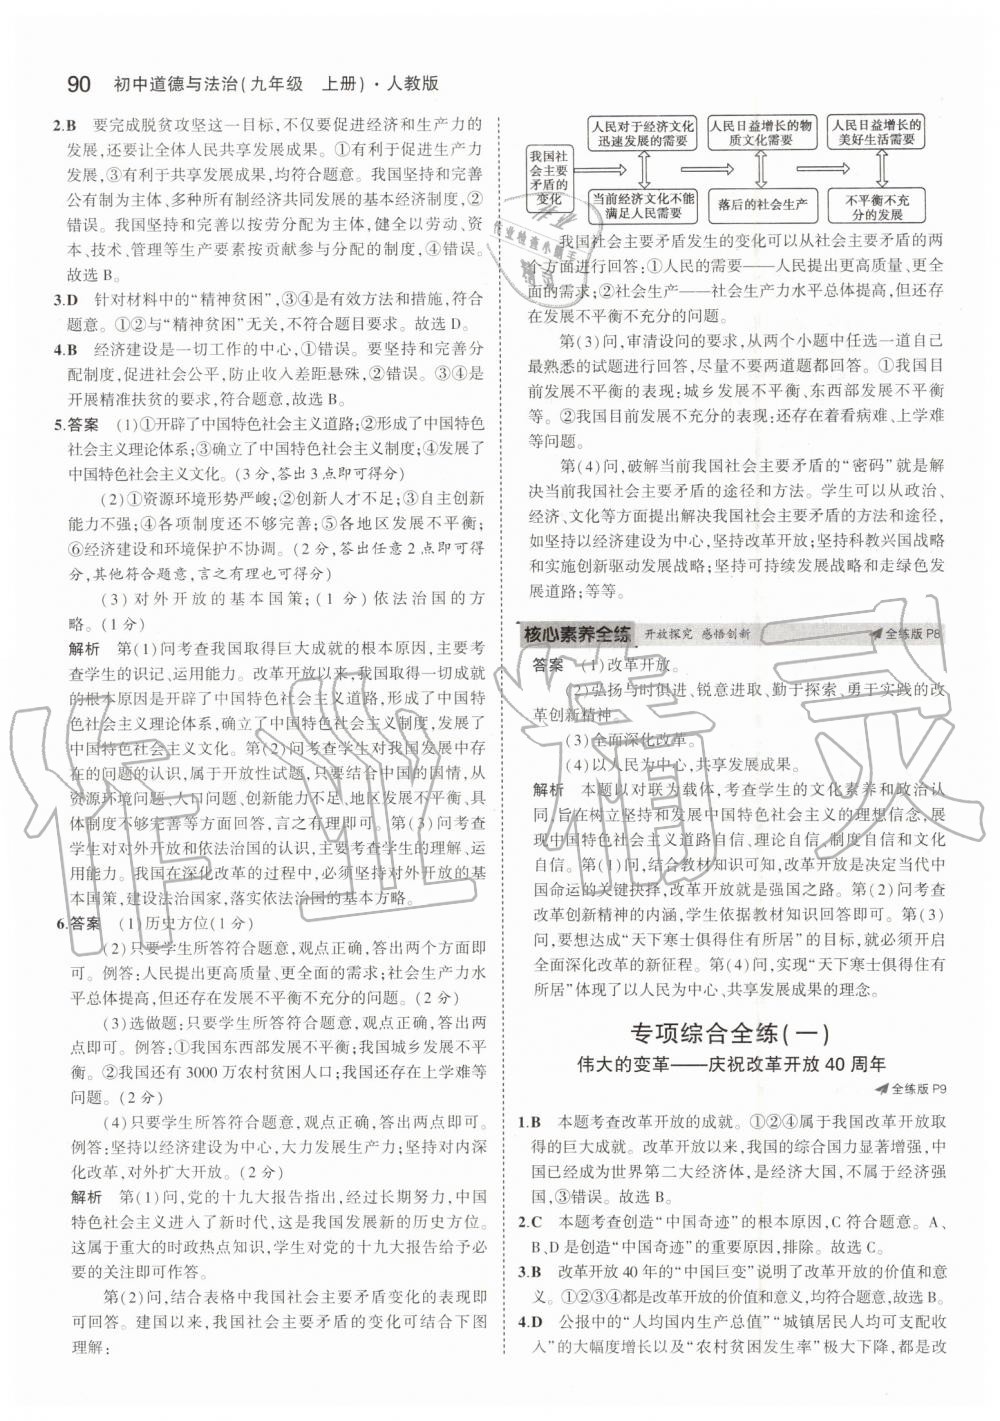 90 初中道德与法治(九年级 上册)·人教版
2.B 要完成脱贫攻坚这一目标,不仅要促进经济和生产力的
发展,还要让全体人民共享发展成果。①有利于促进生产力
发展,③有利于共享发展成果,均符合题意。我国坚持和完善
公有制为主体、多种所有制经济共同发展的基本经济制度,②
错误。我国坚持和完善以按劳分配为主体,健全以劳动、资
本、技术、管理等生产要素按贡献参与分配的制度,④错误。
故选 B。
3.D 针对材料中的“精神贫困”,③④是有效方法和措施,符合
题意。①②与“精神贫困”无关,不符合题目要求。故选 D。
4.B 经济建设是一切工作的中心,①错误。要坚持和完善分
配制度,促进社会公平,防止收入差距悬殊,②错误。③④是
开展精准扶贫的要求,符合题意。故选 B。
5.答案 (1)①开辟了中国特色社会主义道路;②形成了中国特色
社会主义理论体系;③确立了中国特色社会主义制度;④发展了
中国特色社会主义文化。(3 分,答出 3 点即可得分)
(2)①资源环境形势严峻;②创新人才不足;③自主创新
能力不强;④各项制度还不够完善;⑤各地区发展不平衡;
⑥经济建设和环境保护不协调。(2 分,答出任意 2 点即可得
分,其他符合题意,言之有理也可得分)
(3)对外开放的基本国策;(1 分)依法治国的方
略。(1 分)
解析 第(1)问考查我国取得巨大成就的根本原因,主要考
查学生的识记、运用能力。改革开放以来,我国取得一切成就
的根本原因是开辟了中国特色社会主义道路,形成了中国特
色社会主义理论体系,确立了中国特色社会主义制度,发展了
中国特色社会主义文化。第(2)问考查学生对我国发展中存
在的问题的认识,属于开放性试题,只要结合中国的国情,从
资源环境问题、人口问题、创新能力不足、地区发展不平衡、具
体制度不够完善等方面回答,言之有理即可。第(3)问考查
学生对对外开放和依法治国的认识,主要考查学生的理解、运
用能力。我国在深化改革的过程中,必须坚持对外开放的基
本国策,建设法治国家,落实依法治国的基本方略。
6.答案 (1)历史方位(1 分)
(2)只要学生所答符合题意,观点正确,答出两个方面即
可。例答:人民提出更高质量、更全面的需求;社会生产力水
平总体提高,但还存在发展不平衡不充分的问题。(2 分)
(3)选做题:只要学生所答符合题意,观点正确,答出两
点即可。例答:①我国东西部发展不平衡;我国城乡发展不
平衡。②我国还有 3000 万农村贫困人口;还存在上学难等
问题。(2 分)
(4)只要学生所答符合题意,观点正确,答出两点即可。
例答:坚持以经济建设为中心,大力发展生产力;坚持对内深
化改革,对外扩大开放。(2 分)
解析 第(1)问,党的十九大报告指出,经过长期努力,中国
特色社会主义进入了新时代,这是我国发展新的历史方位。
这属于重大的时政热点知识,学生对党的十九大报告给予必
要的关注即可作答。
第(2)问,结合表格中我国社会主要矛盾变化的表现即
可回答。建国以来,我国社会主要矛盾的变化可结合下图
理解:
我国社
会主要
矛盾的
变化
人民对于经济文化
迅速发展的需要
人民日益增长的物
质文化需要
人民日益增长的
美好生活需要
当前经济文化不能
满足人民需要
落后的社会生产
不平衡不充
分的发展
我国社会主要矛盾发生的变化可以从社会主要矛盾的两
个方面进行回答:①人民的需要——人民提出更高质量、更全
面的需求;②社会生产——社会生产力水平总体提高,但还存
在发展不平衡不充分的问题。
第(3)问,审清设问的要求,从两个小题中任选一道自己
最熟悉的试题进行回答,尽量不要两道题都回答。①我国目
前发展不平衡的表现:城乡发展不平衡、东西部发展不平衡
等。②我国目前发展不充分的表现:还存在着看病难、上学难
等问题。
第(4)问,破解当前我国社会主要矛盾的“密码”就是解
决当前我国社会主要矛盾的途径和方法。学生可以从政治、
经济、文化等方面提出解决我国社会主要矛盾的方法和途径,
如坚持以经济建设为中心,坚持改革开放;坚持科教兴国战略
和实施创新驱动发展战略;坚持可持续发展战略和走绿色发
展道路;等等。
核心素养全练 开放探究 感悟创新 全练版 P8
答案 (1)改革开放。
(2)弘扬与时俱进、锐意进取、勤于探索、勇于实践的改
革创新精神。
(3)全面深化改革。
(4)以人民为中心,共享发展成果。
解析 本题以对联为载体,考查学生的文化素养和政治认
同,旨在树立坚持和发展中国特色社会主义的理想信念,展
现中国特色社会主义道路自信、理论自信、制度自信和文化
自信。第(1)问,结合教材知识可知,改革开放是决定当代中
国命运的关键抉择,改革开放就是强国之路。第(2)问考查
改革创新精神的内涵,学生依据教材知识回答即可。第(3)
问,要想达成“天下寒士俱得住有所居”的目标,就必须开启
全面深化改革的新征程。第(4)问,实现“天下寒士俱得住有
所居”体现了以人民为中心、共享发展成果的理念。
专项综合全练(一)
伟大的变革——庆祝改革开放 40 周年
全练版 P9
1.B 本题考查改革开放的成就。①②④属于我国改革开放取
得的巨大成就。改革开放以来,我国的综合国力显著增强,中
国已经成为世界第二大经济体,是经济大国,不属于经济强
国,③错误。故选 B。
2.C 本题考查创造“中国奇迹”的根本原因,C 符合题意。A、
B、D 是创造“中国奇迹”的重要原因,排除。故选 C。
3.B 改革开放 40 年的“中国巨变”说明了改革开放的价值和意
义。①②③④都是改革开放的价值和意义,均符合题意,故选 B。
4.D 公报中的“人均国内生产总值”“城镇居民人均可支配收
入”的大幅度增长以及“农村贫困发生率”大幅下降,都是改
作业精灵